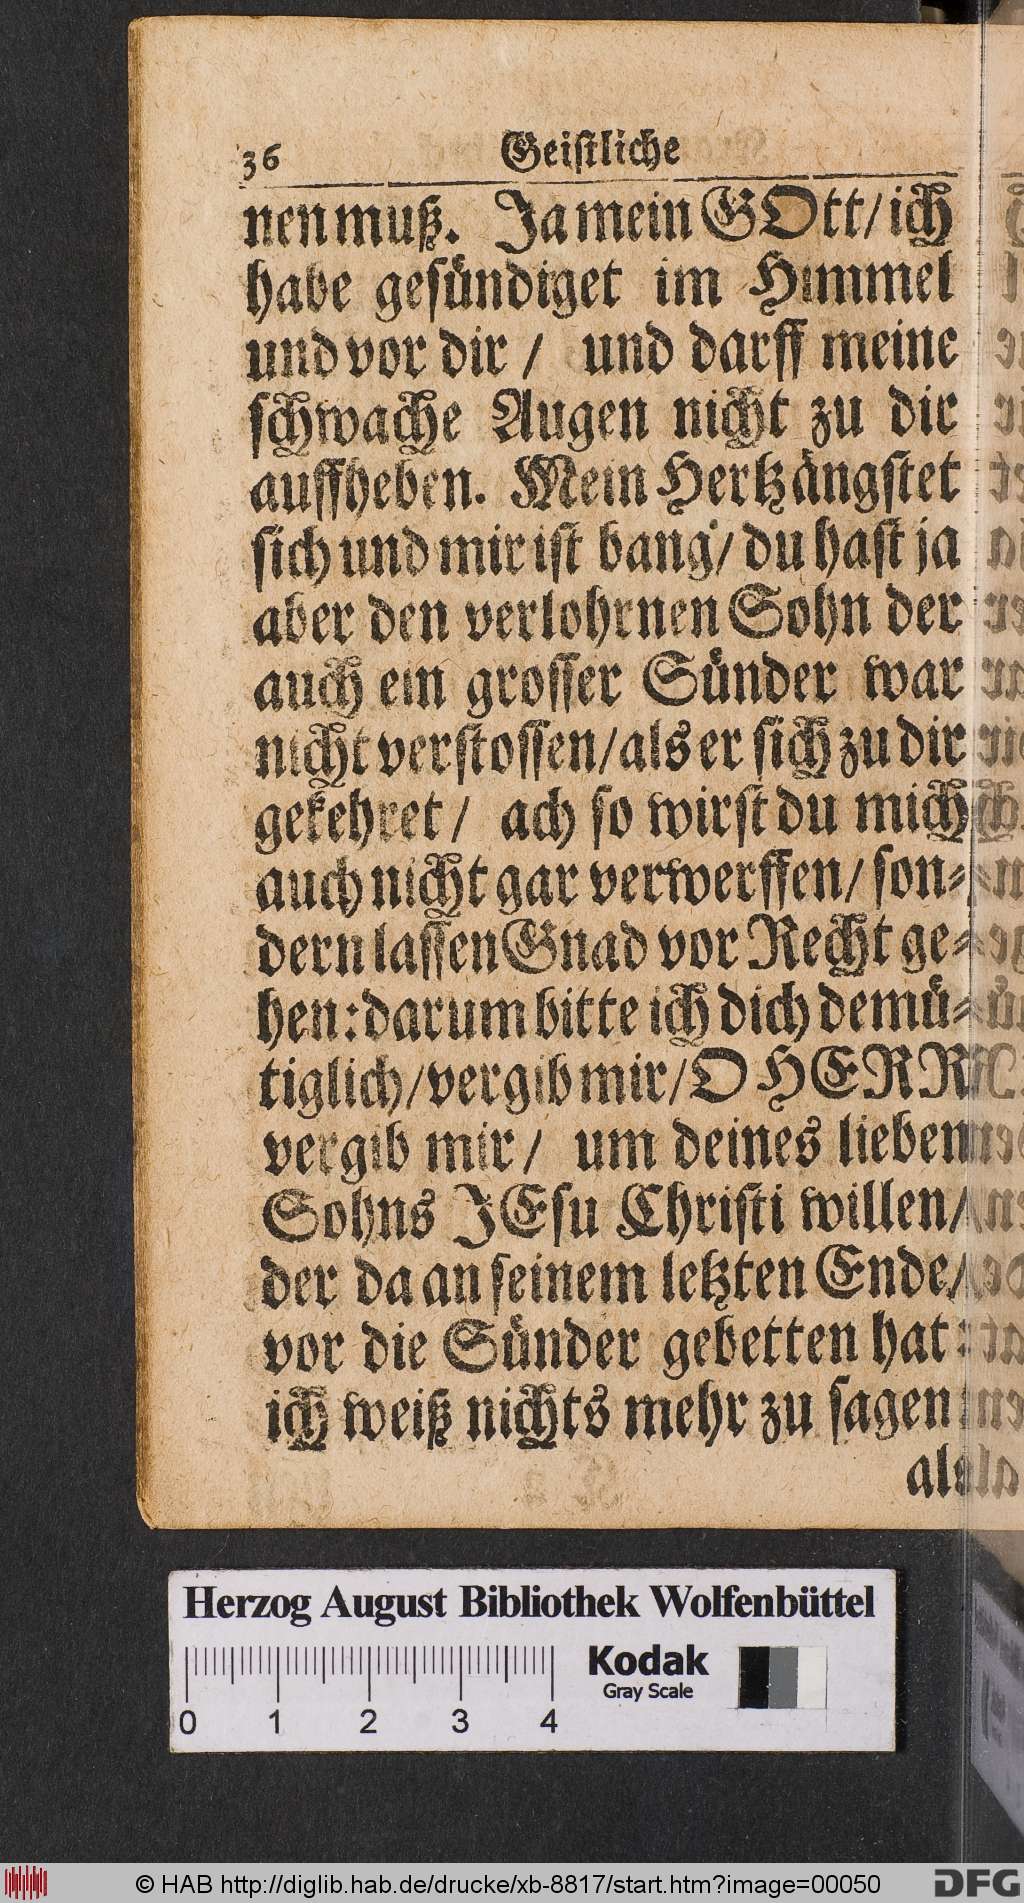 36 Geistliche
nen muß. Ja mein GOtt/ ich
habe gesündiget im Himmel
und vor dir / und darff meine
schwache Augen nicht zu dir
auffheben. Mein Hertz ängstet
sich und mir ist bang/ du hast ja
aber den verlohrnen Sohn der
auch ein grosser Sünder war
nicht verstossen/ als er sich zu dir
gekehret / ach so wirst du mich
auch nicht gar verwerffen/ son-
dern lassen Gnad vor Recht ge-
hen: darum bitte ich dich demü-
tiglich/ vergib mir/ O HERR
vergib mir / um deines lieben
Sohns JEsu Christi willen/
der da an seinem letzten Ende/
vor die Sünder gebetten hat:
ich weiß nichts mehr zu sagen
als
Herzog August Bibliothek Wolfenbüttel
Kodak
Gray Scale
0 1 2 3 4
© HAB http://diglib.hab.de/drucke/xb-8817/start.htm?image=00050
DFG